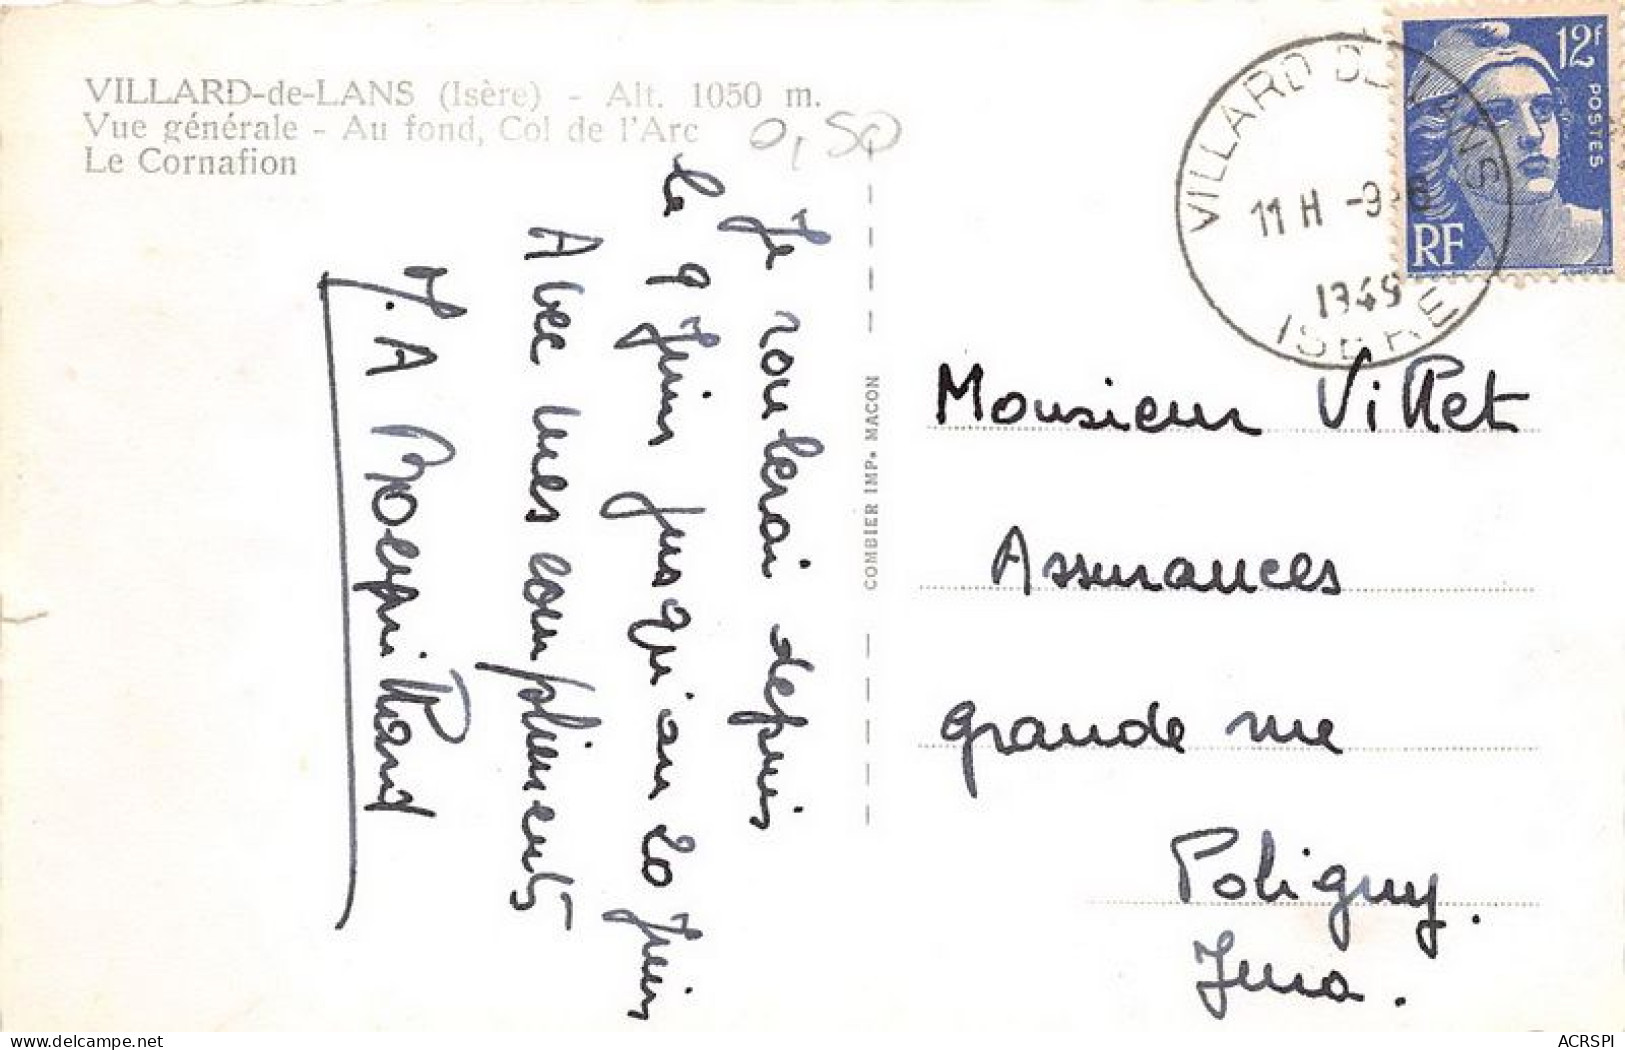 VILLARD-de-LANS (Isère) - Alt. 1050 m.
Vue générale - Au fond, Col de l'Arc
Le Cornafion
0,50
Je roulerai depuis
le 9 Juin jusqu'au 20 Juin
Avec mes compliments
J. A
COMBIER IMP. MACON
VILLARD DE LANS
11 H -9
1949
ISERE
12f
POSTES
RF
Monsieur Villet
Assurances
grande rue
Poligny.
Jura.
ACRSPI